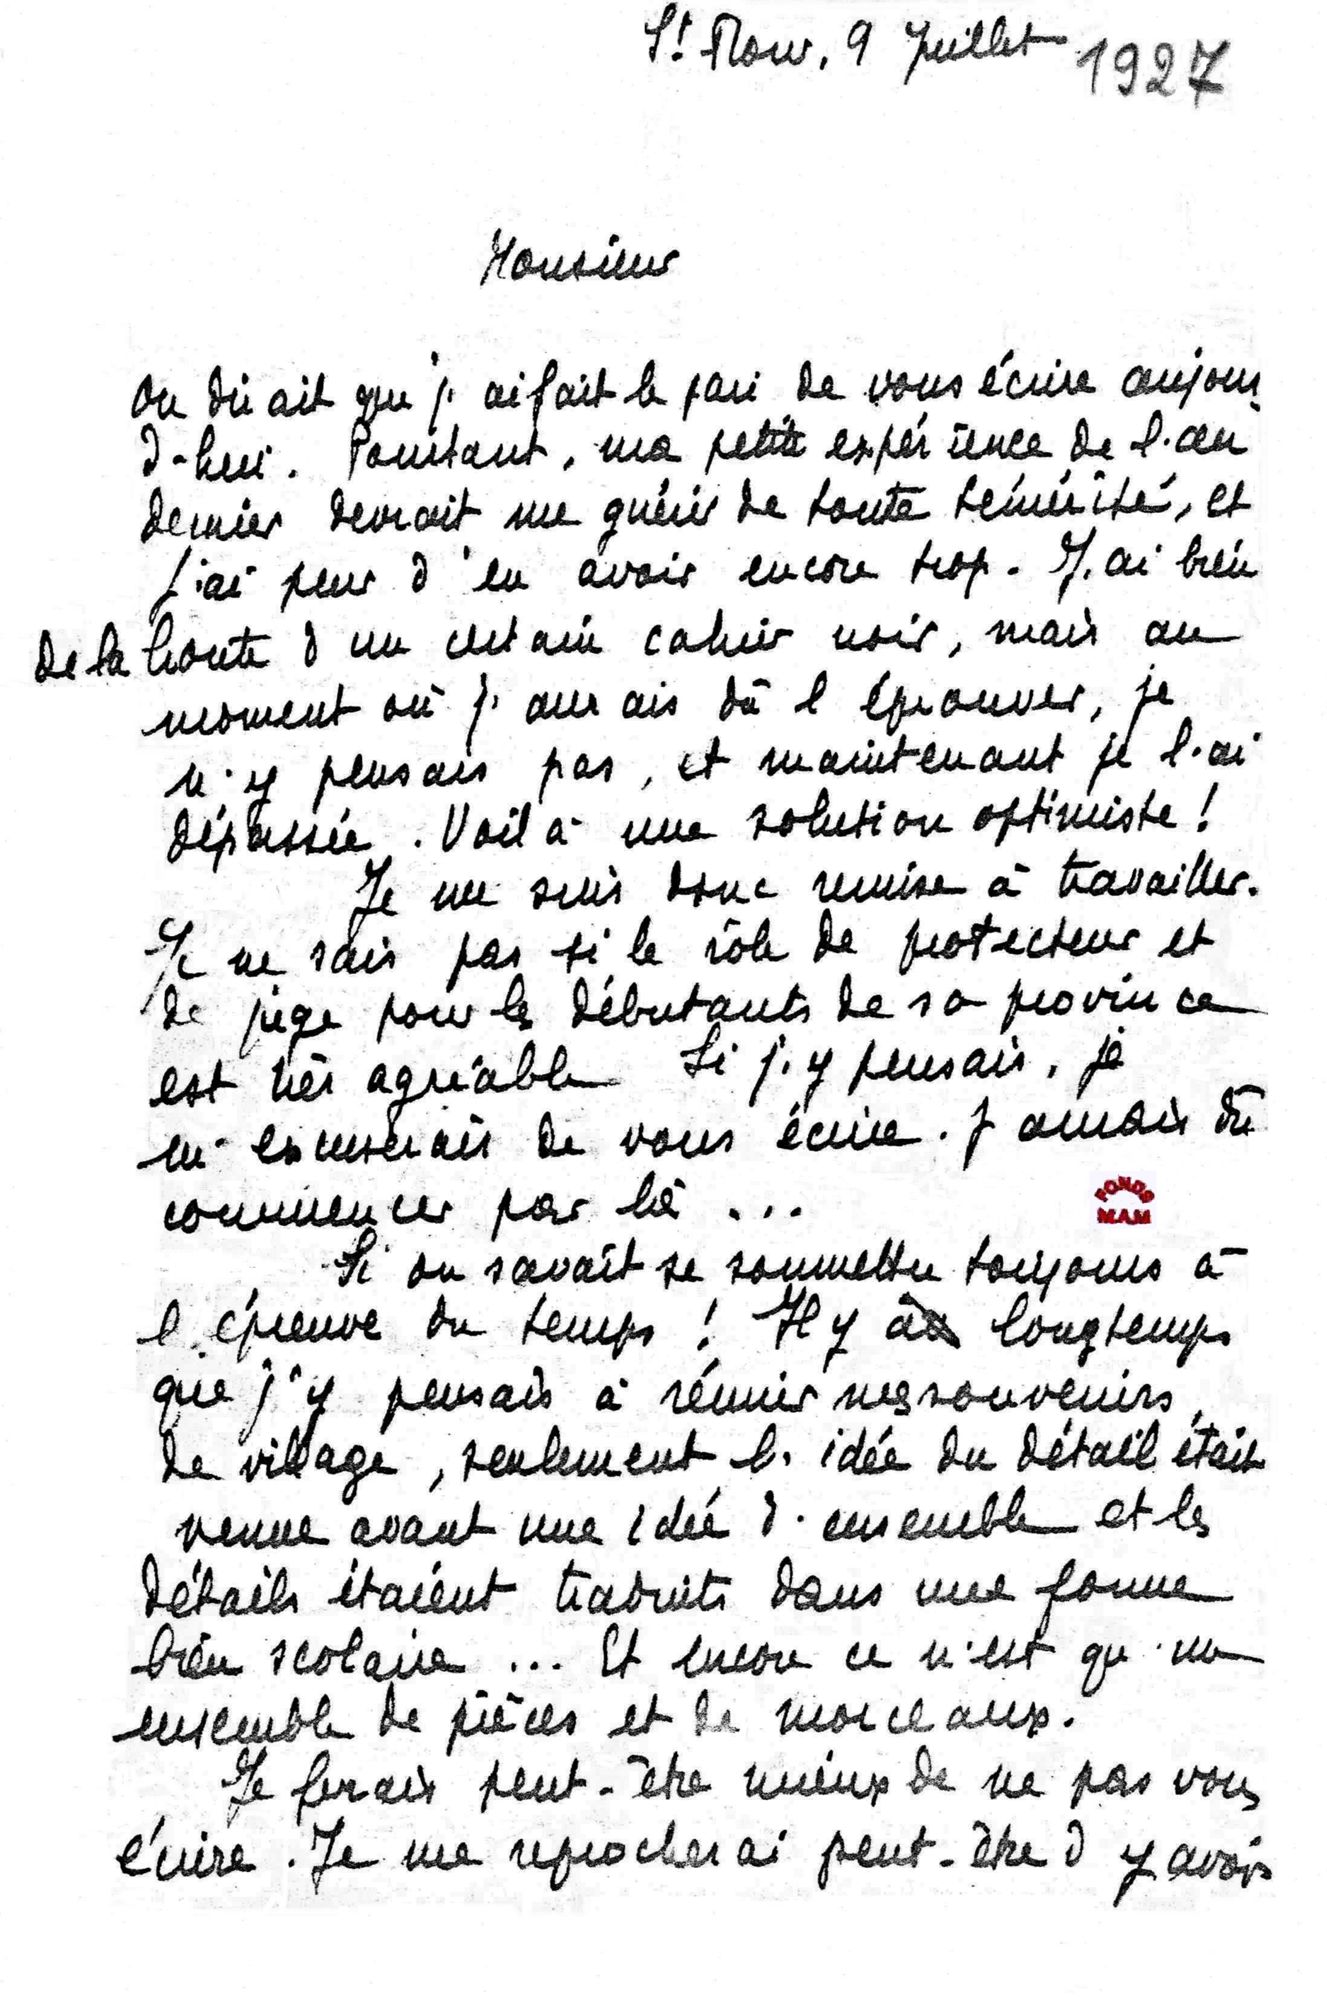 St Flour, 9 Juillet 1927
Monsieur
On dirait que j'ai fait le pari de vous écrire aujour
d'hui. Pourtant, ma petite expérience de l'an
dernier devrait me guérir de toute témérité, et
j'ai peur d'en avoir encore trop. J'ai bien
de la honte d'un certain cahier noir, mais au
moment où j'aurais dû l'éprouver, je
n'y pensais pas, et maintenant je l'ai
dépassée. Voilà une solution optimiste !
Je me suis donc remise à travailler.
Je ne sais pas si le rôle de protecteur et
de juge pour les débutants de sa province
est très agréable Si j'y pensais, je
m'excuserais de vous écrire. J'aurais dû
commencer par là ...
FONDS
MAM
Si on savait se soumettre toujours à
l'épreuve du temps ! Il y a longtemps
que j'y pensais à réunir mes souvenirs
de village, seulement l'idée du détail était
venue avant une idée d'ensemble et les
détails étaient traduits dans une forme
bien scolaire ... Et encore ce n'est qu'un
ensemble de pièces et de morceaux.
Je ferais peut-être mieux de ne pas vous
écrire. Je me reprocherai peut-être d'y avoir